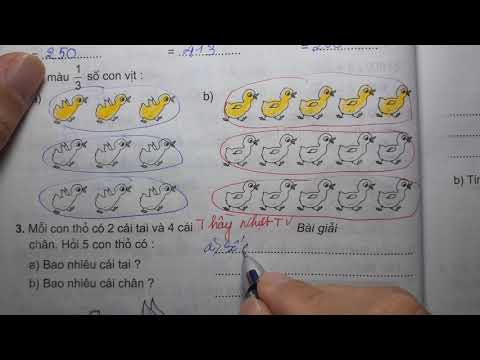 = 250
= 213
màu 1/3 số con vịt :
a)
b)
3. Mỗi con thỏ có 2 cái tai và 4 cái
chân. Hỏi 5 con thỏ có :
a) Bao nhiêu cái tai ?
b) Bao nhiêu cái chân ?
Thầy Nhật TV
Bài giải
a) Số
b) Tín